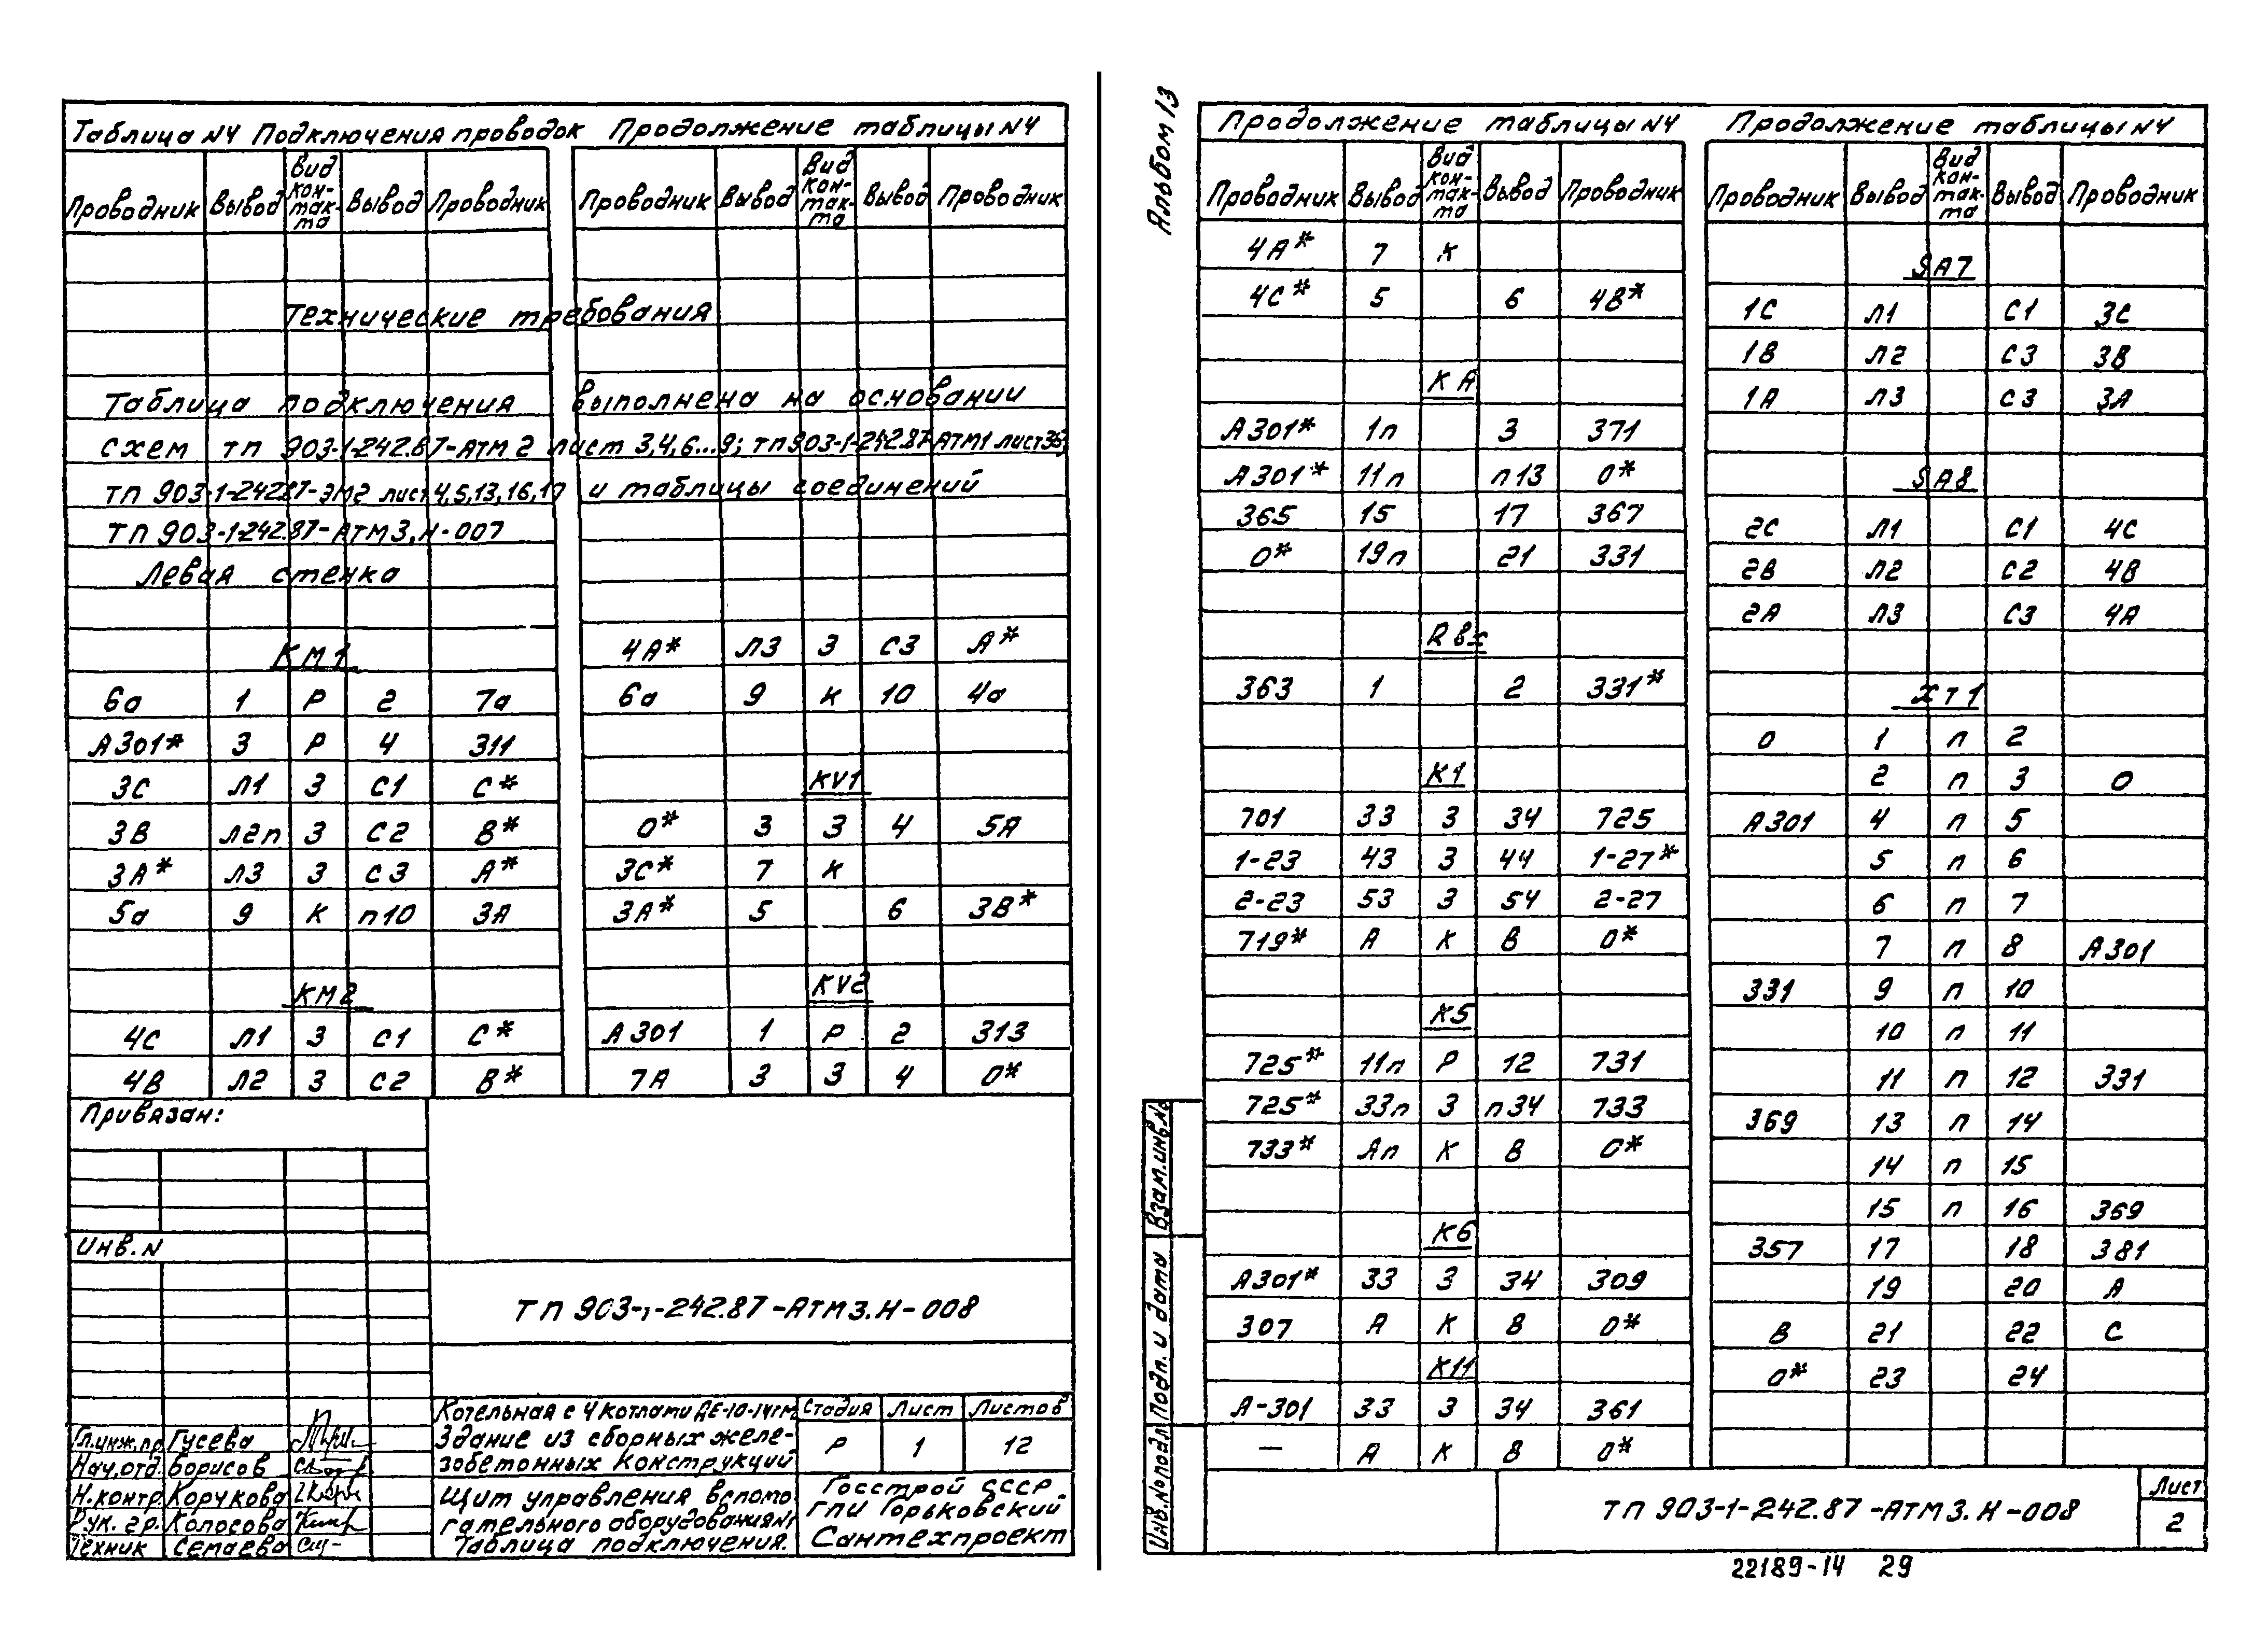 Таблица N4 Подключения проводок Продолжение таблицы N4
Проводник Вывод Вид контакта Вывод Проводник Проводник Вывод Вид контакта Вывод Проводник
Технические требования
Таблица подключения выполнена на основании
схем тп 903-1-242.87-АТМ 2 лист 3,4,6...9; тп 903-1-242.87-АТМ1 лист 36,
тп 903-1-242.87-ЭМ2 лист 4,5,13,16,17 и таблицы соединений
ТП 903-1-242.87-АТМ3.Н-007
Левая стенка
КМ1
6а 1 Р 2 7а
А301* 3 Р 4 311
3С Л1 З С1 С*
3В Л2п З С2 В*
3А* Л3 З С3 А*
5а 9 К п10 3А
КМ2
4С Л1 З С1 С*
4В Л2 З С2 В*
4А* Л3 З С3 А*
6а 9 К 10 4а
KV1
0* 3 З 4 5А
3С* 7 К
3А* 5 6 3В*
KV2
А301 1 Р 2 313
7А 3 З 4 0*
Привязан:
Инв. N
ТП 903-1-242.87-АТМ3.Н-008
Котельная с 4 котлами ДЕ-10-14ГМ
Здание из сборных желе-
зобетонных конструкций
Стадия Лист Листов
Р 1 12
Гл.инж.пр. Гусева
Нач.отд. Борисов
Н.контр. Корчкова
Рук. гр. Колосова
Техник Семаева
Щит управления вспомо-
гательного оборудования N1
Таблица подключения.
Госстрой СССР
ГПИ Горьковский
Сантехпроект
Альбом 13
Продолжение таблицы N4 Продолжение таблицы N4
Проводник Вывод Вид контакта Вывод Проводник Проводник Вывод Вид контакта Вывод Проводник
4А* 7 К
4С* 5 6 4В*
КА
А301* 1п 3 371
А301* 11п п13 0*
365 15 17 367
0* 19п 21 331
Rвх
363 1 2 331*
К1
701 33 З 34 725
1-23 43 З 44 1-27*
2-23 53 З 54 2-27
719* А К В 0*
К5
725* 11п Р 12 731
725* 33п З п34 733
733* Ап К В 0*
К6
А301* 33 З 34 309
307 А К В 0*
К11
А-301 33 З 34 361
— А К В 0*
SA7
1С Л1 С1 3С
1В Л2 С3 3В
1А Л3 С3 3А
SA8
2С Л1 С1 4С
2В Л2 С2 4В
2А Л3 С3 4А
ХТ1
0 1 п 2
2 п 3 0
А301 4 п 5
5 п 6
6 п 7
7 п 8 А301
331 9 п 10
10 п 11
11 п 12 331
369 13 п 14
14 п 15
15 п 16 369
357 17 18 381
19 20 А
В 21 22 С
0* 23 24
Взам.инв.№
Подп. и дата
Инв.№подл
ТП 903-1-242.87-АТМ3.Н-008
Лист
2
22189-14 29